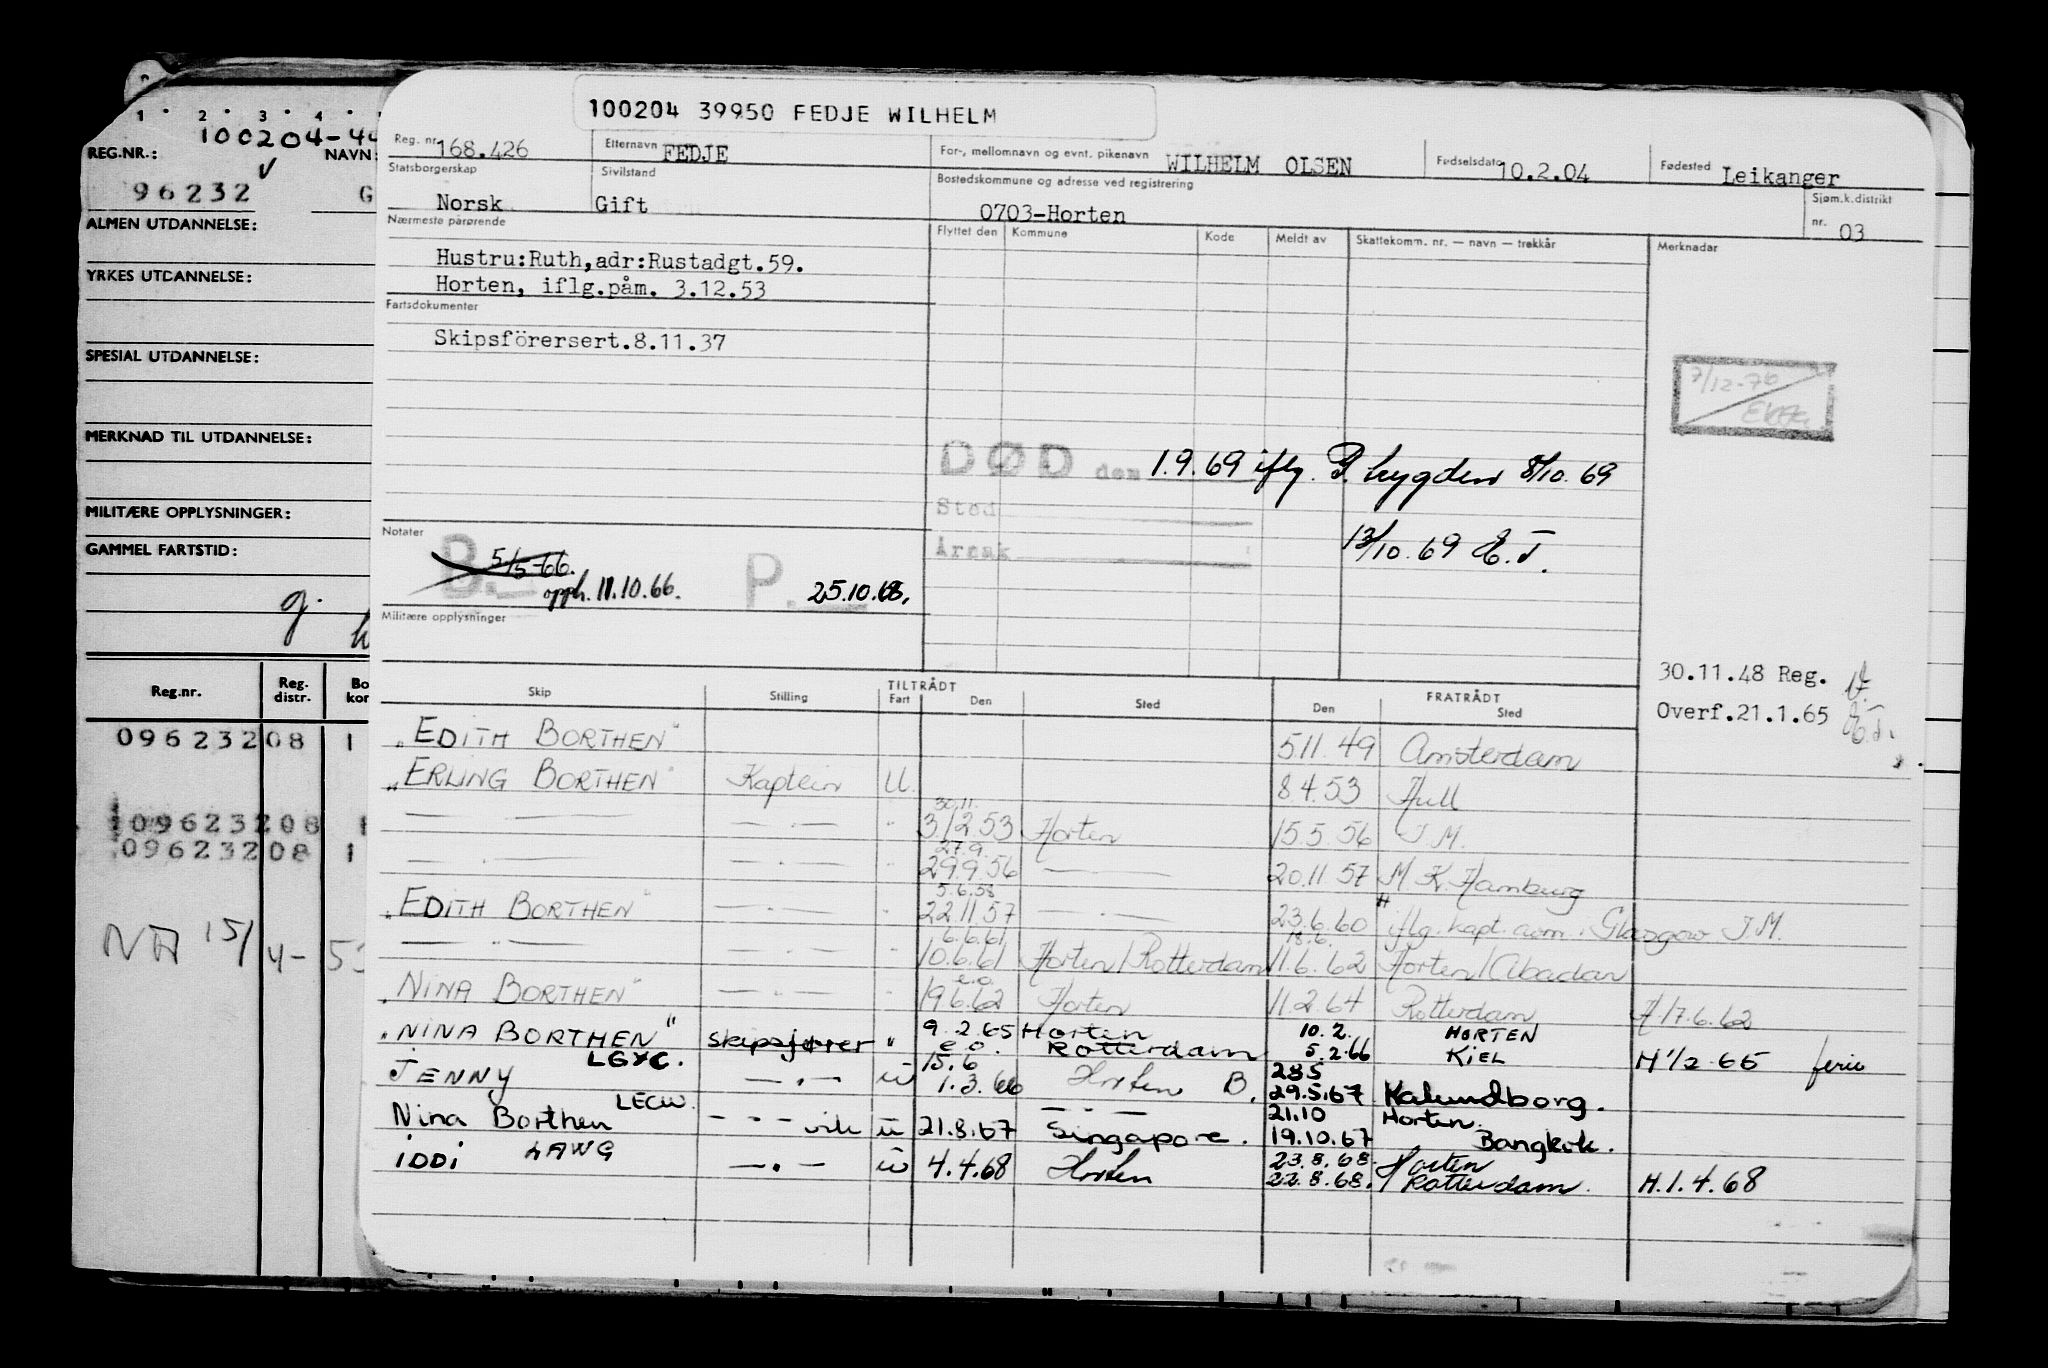 1 · 2 · 3 · 4 ·
100204-44
REG.NR.: NAVN:
96232 G
ALMEN UTDANNELSE:
YRKES UTDANNELSE:
SPESIAL UTDANNELSE:
MERKNAD TIL UTDANNELSE:
MILITÆRE OPPLYSNINGER:
GAMMEL FARTSTID:
g.
Reg.nr. Reg. distr. Bo kor
09623208 1
09623208 1
09623208 1
NA 15/4-
100204 39950 FEDJE WILHELM
Reg. nr. 168.426 Etternavn FEDJE For-, mellomnavn og evnt. pikenavn WILHELM OLSEN Fødselsdato 10.2.04 Fødested Leikanger
Statsborgerskap Norsk Sivilstand Gift Bostedskommune og adresse ved registrering 0703-Horten Sjøm.k.distrikt nr. 03
Nærmeste pårørende Flyttet den Kommune Kode Meldt av Skattekomm. nr. — navn — trekkår Merknadar
Hustru:Ruth,adr:Rustadgt.59.
Horten, iflg.påm. 3.12.53
Fartsdokumenter
Skipsförersert.8.11.37
7/12-76
DØD den 1.9.69 iflg. P. trygden 8/10.69
Sted
Årsak 13/10.69 E.T.
Notater
B. 5/5-66.
opph. 11.10.66. P. 25.10.68.
Militære opplysninger
30.11.48 Reg.
Overf.21.1.65 E.T.
TILTRÅDT FRATRÅDT
Skip Stilling Fart Den Sted Den Sted
"EDITH BORTHEN" 5.11.49 Amsterdam
"ERLING BORTHEN" Kaptein U. 8.4.53 Hull
30.11.
— . — — . — " 3/12.53 Horten 15.5.56 J.M.
27.9.
— . — — . — " 29.9.56 — 20.11.57 M.K. Hamburg
5.6.58
"EDITH BORTHEN" — . — " 22.11.57 — . — 23.6.60 iflg. kapt. avm. i Glasgow J.M.
6.6.61 18.6.
— " — — . — " 10.6.61 Horten/Rotterdam 11.6.62 Horten/Abadan
e.o.
"NINA BORTHEN" — . — " 19.6.62 Horten 11.2.64 Rotterdam H 17.6.62
9.2.65 Horten 10.2. HORTEN
"NINA BORTHEN" skipsfører " e.o. Rotterdam 5.2.66 KIEL H 1/2-65 ferie
LGYC. 15.6 28.5
JENNY — . — u 1.3.66 Horten B. 29.5.67 Kalundborg.
LECW. — . — 21.10 Horten.
Nina Borthen — - — vik u 21.8.67 Singapore. 19.10.67 Bangkok.
LAWG 23.8.68. Horten
IDDI — . — u 4.4.68 Horten 22.8.68. Rotterdam. H.1.4.68